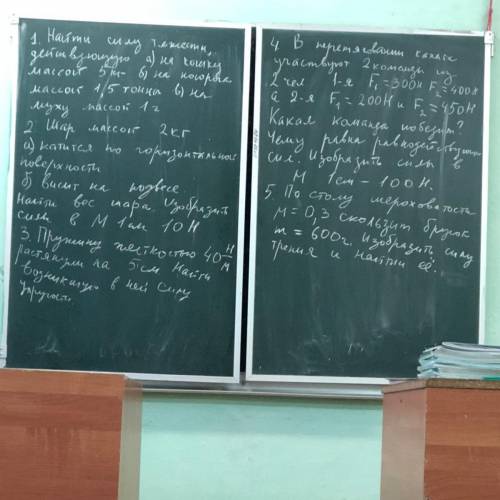 1. Найти силу тяжести,
действующую а) на кошку
массой 5кг б) на
массой 1,5 тонны в) на
муху массой 1 г
2. Шар массой 2кг
а) катится по горизонтальной
поверхности
б) висит на подвесе
Найти вес шара. Изобразить
силы в М 1см 10Н
3. Пружину жесткостью 40 Н/м
растянули на 5см Найти
возникшую в ней силу
упругости
4. В перетягивании каната
участвуют 2 команды из
2 чел 1-я F₁=300Н F₂=400Н
а 2-я F₁=200Н и F₂=450Н
Какая команда победит?
Чему равна равнодействующая
сил. Изобразить силы в
М 1см – 100Н.
5. По столу шероховатость
М=0,3 скользит брусок
m=600г. Изобразить силу
трения и найти её.